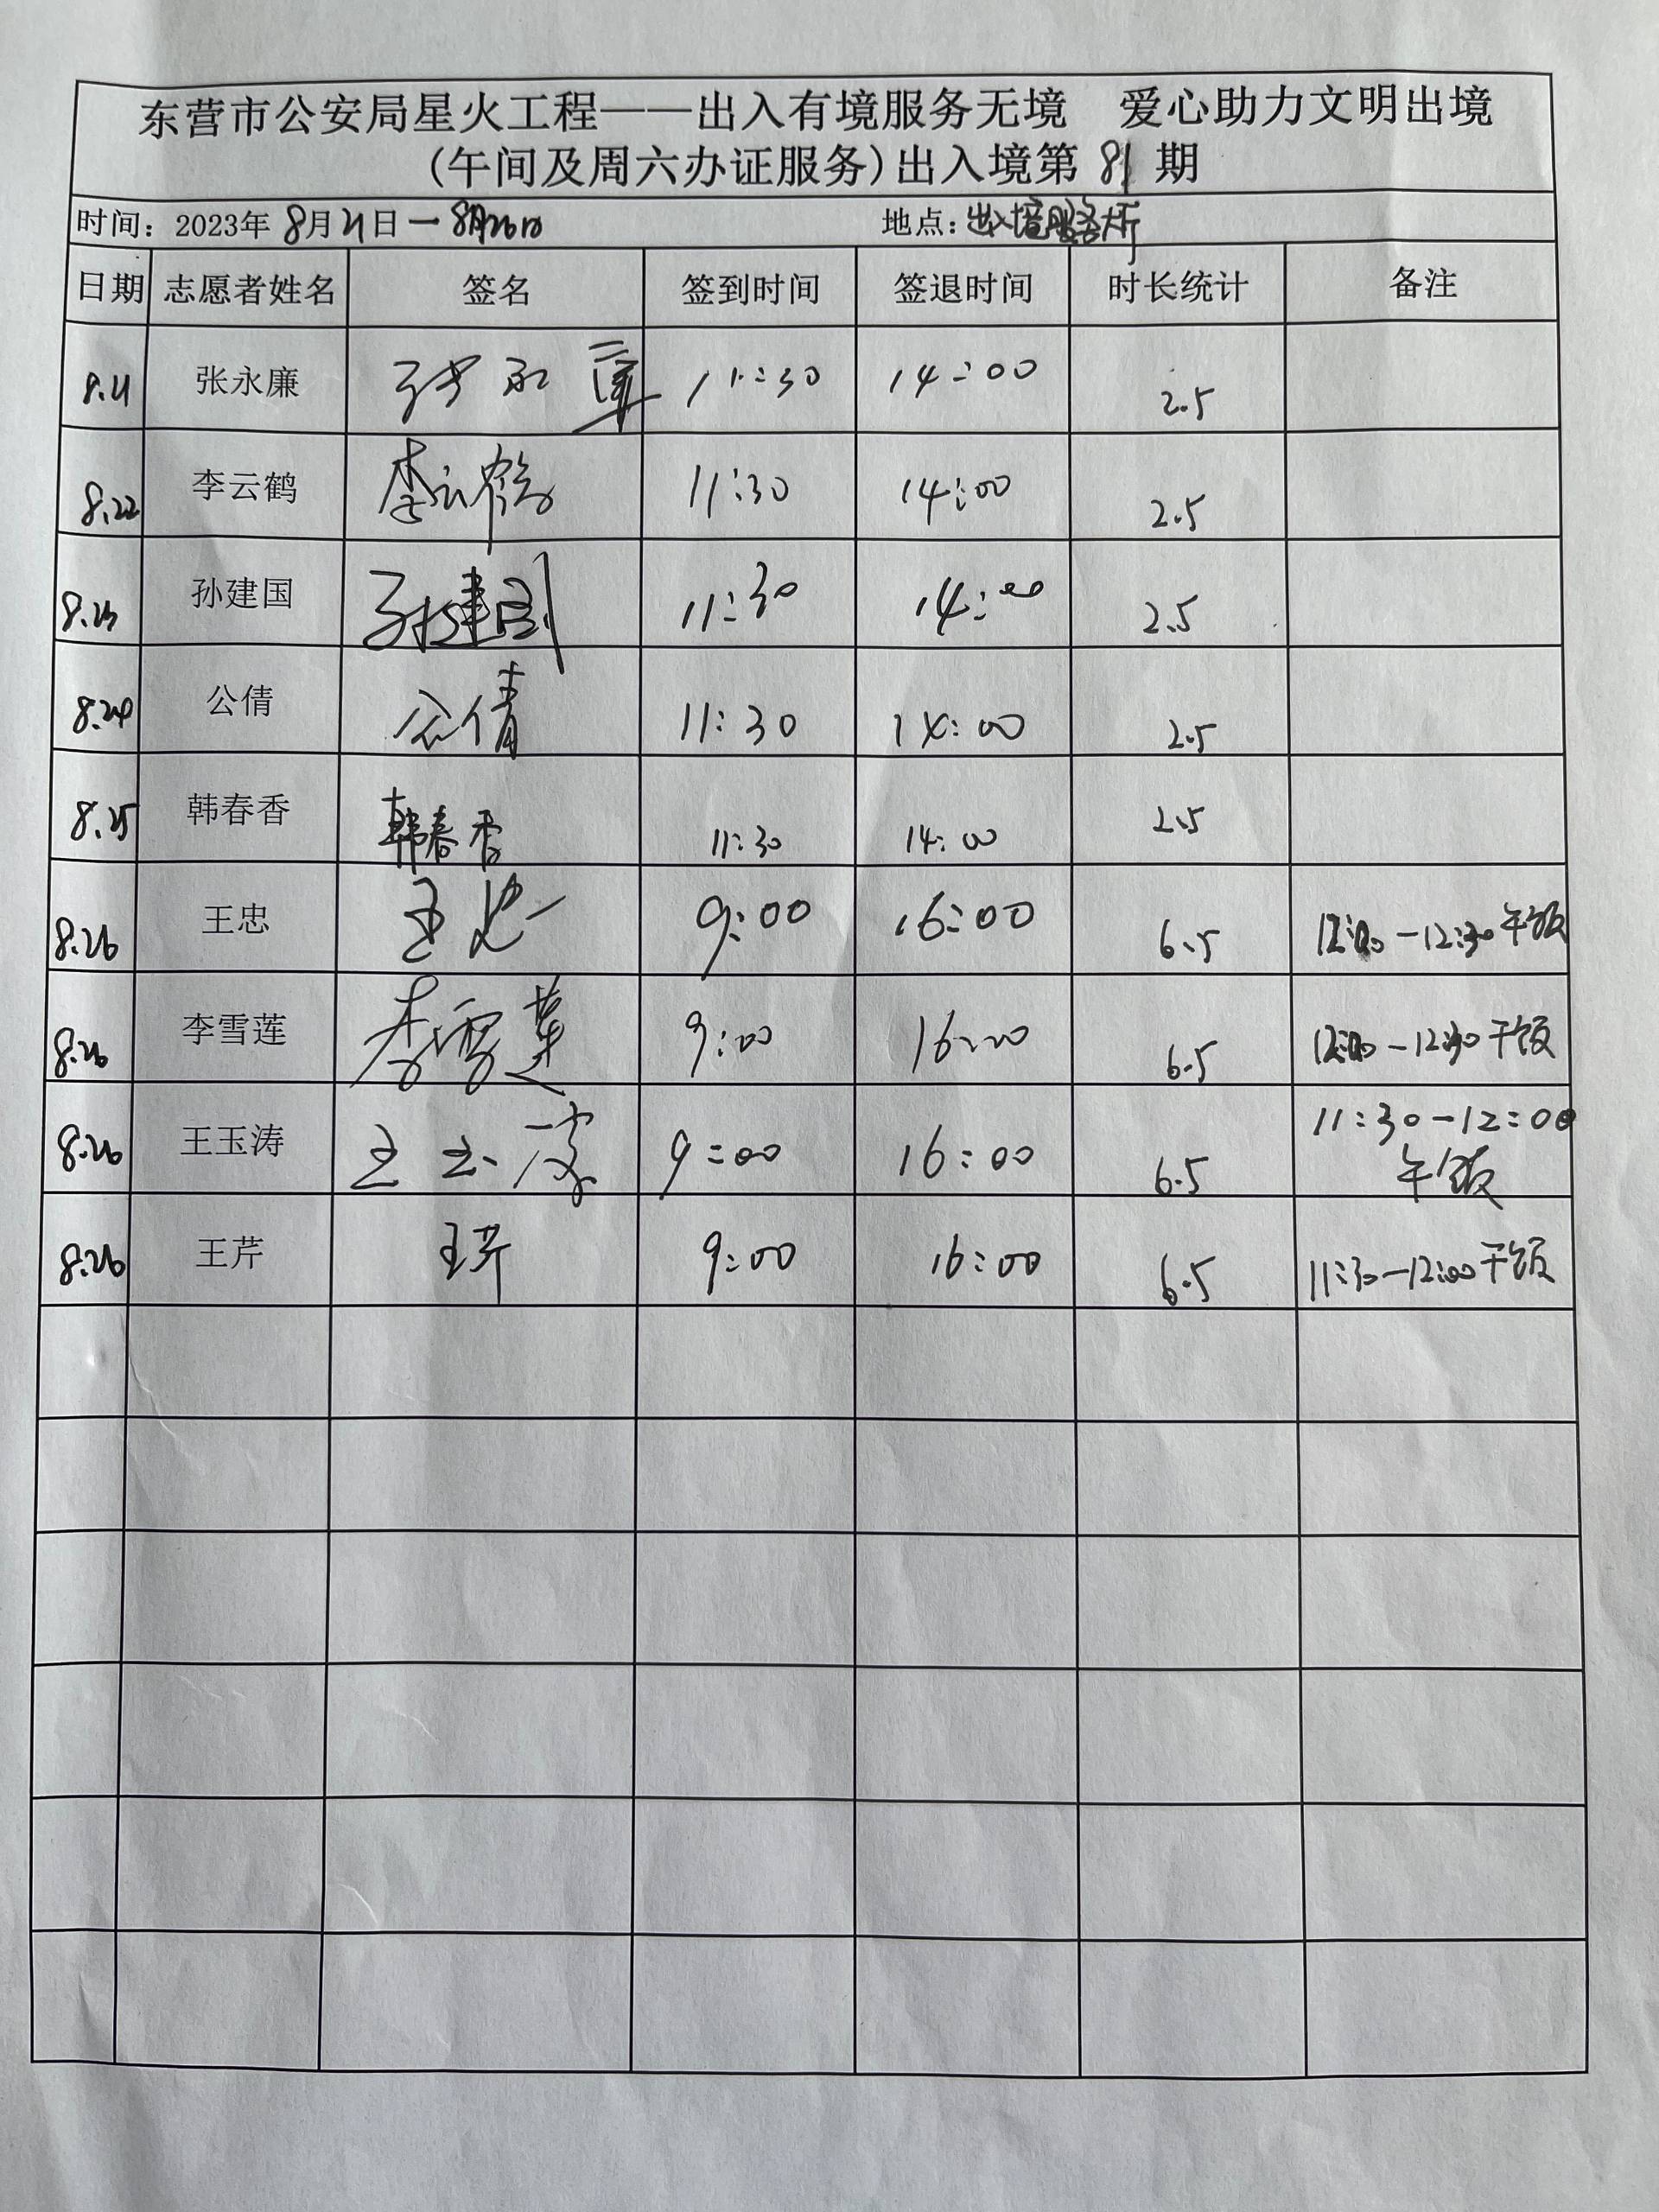 东营市公安局星火工程——出入有境服务无境 爱心助力文明出境
(午间及周六办证服务)出入境第 81 期
时间: 2023年 8月21日—8月26日 地点: 出入境服务大厅
日期 志愿者姓名 签名 签到时间 签退时间 时长统计 备注
8.21 张永廉 张永廉 11:30 14:00 2.5
8.22 李云鹤 李云鹤 11:30 14:00 2.5
8.23 孙建国 孙建国 11:30 14:00 2.5
8.24 公倩 公倩 11:30 14:00 2.5
8.25 韩春香 韩春香 11:30 14:00 2.5
8.26 王忠 王忠 9:00 16:00 6.5 12:00-12:30午饭
8.26 李雪莲 李雪莲 9:00 16:00 6.5 12:00-12:30午饭
8.26 王玉涛 王玉涛 9:00 16:00 6.5 11:30-12:00
午饭
8.26 王芹 王芹 9:00 16:00 6.5 11:30-12:00午饭